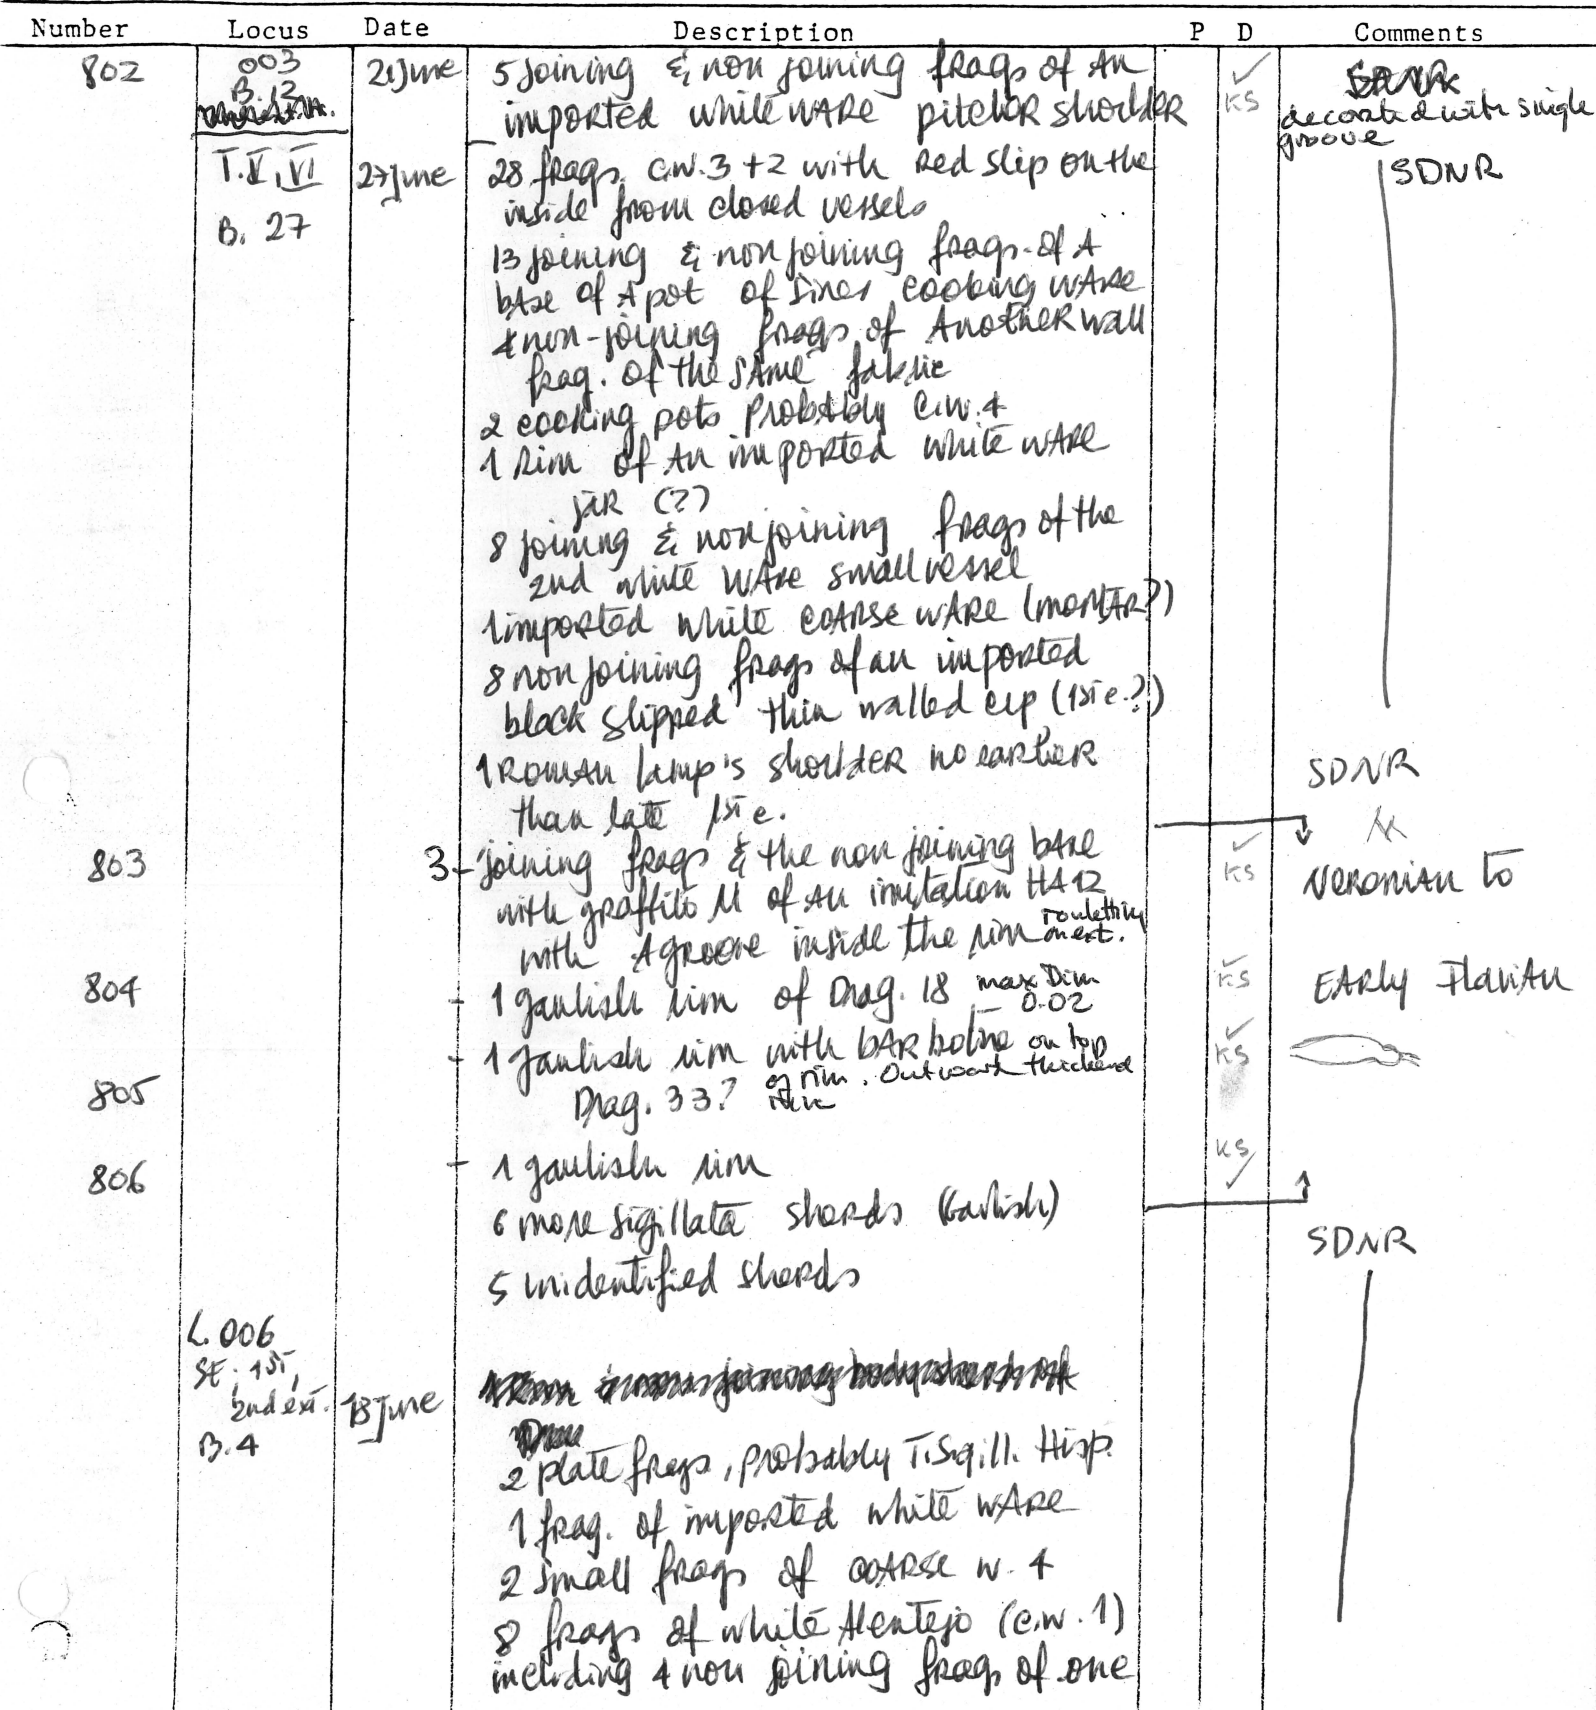 Number Locus Date Description P D Comments
802 003 21 June 5 joining & non joining frags of an ✓
B. 12 imported white ware pitcher shoulder KS decorated with single
groove
T. V, VI 27 June 28 frags. c.w. 3 + 2 with red slip on the SDNR
inside from closed vessels
B. 27
13 joining & non joining frags. of a
base of a pot of finer cooking ware
4 non-joining frags of another wall
frag. of the same fabric
2 cooking pots probably c.w. 4
1 rim of an imported white ware
jar (?)
8 joining & non joining frags of the
2nd white ware small vessel
1 imported white coarse ware (mortar?)
8 non joining frags of an imported
black slipped thin walled cup (1st c.?)
1 Roman lamp's shoulder no earlier SDNR
than late 1st c.
803 3 - joining frags & the non joining base ✓ KS Neronian to
with graffito M of an imitation HA 12
with a groove inside the rim rouletting
on ext.
804 - 1 gaulish rim of Drag. 18 max Dim ✓ KS Early Flavian
0.02
- 1 gaulish rim with barbotine on top ✓ KS
805 Drag. 33? of rim. Outward thickened
rim
806 - 1 gaulish rim KS ✓
6 more sigillata sherds (Gaulish)
SDNR
5 unidentified sherds
L. 006
SE; 1st,
2nd ext. 13 June
B. 4
2 plate frags, probably T. Sigill. Hisp.
1 frag. of imported white ware
2 small frags of coarse w. 4
8 frags of white Alentejo (c.w. 1)
including 4 non joining frags of one